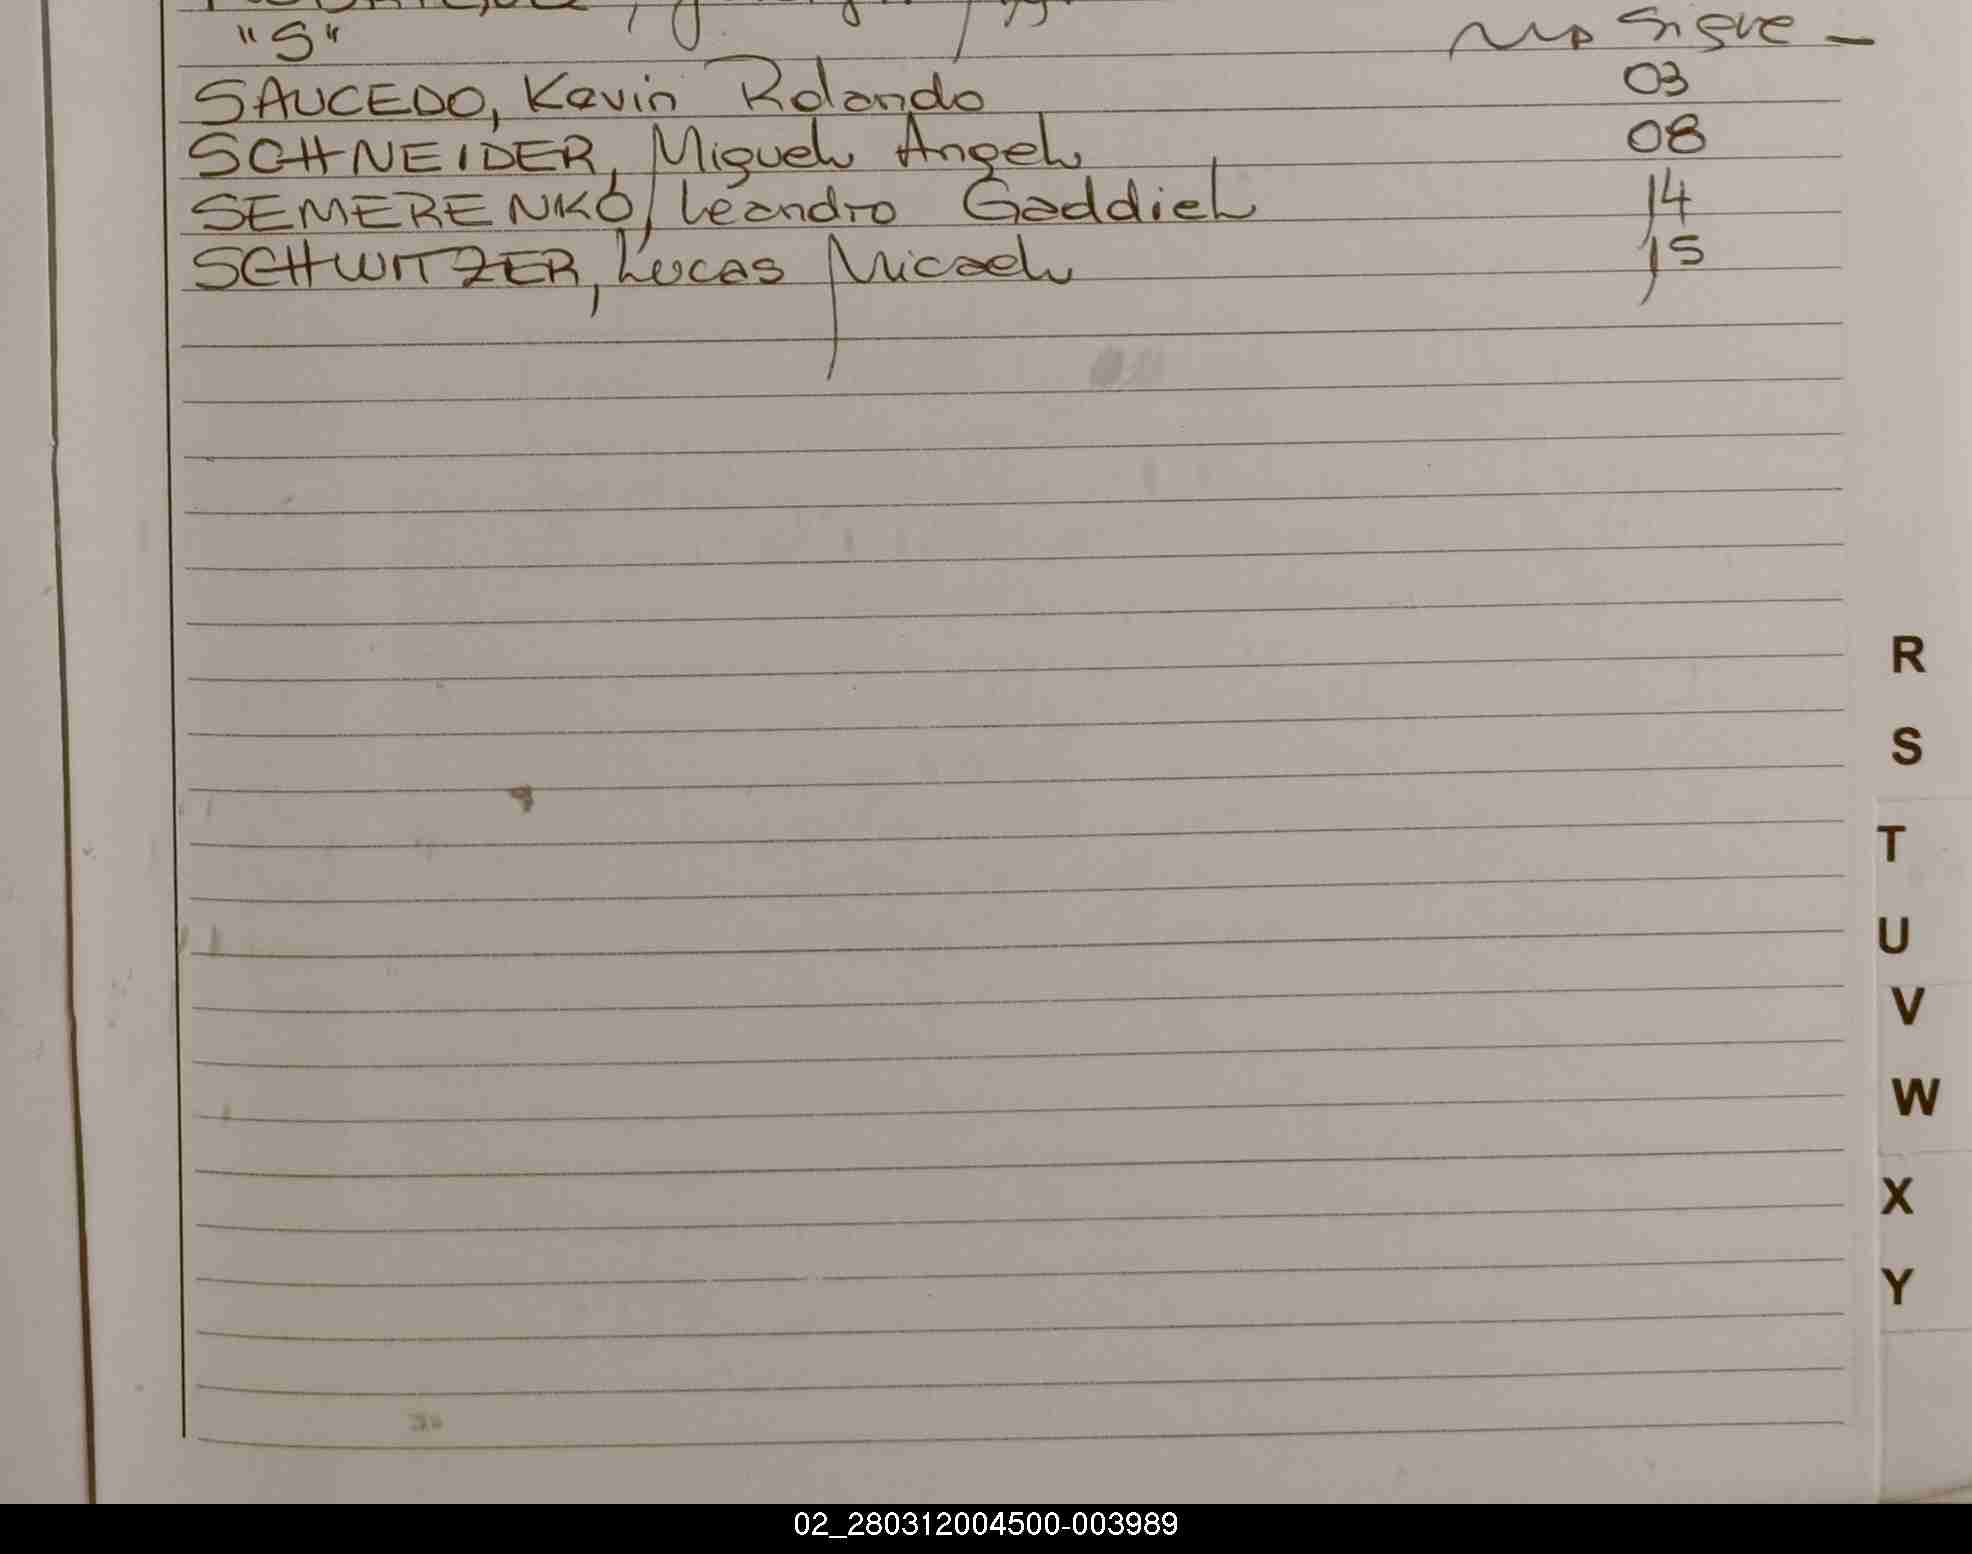 "S" No sigue -
SAUCEDO, Kevin Rolando 03
SCHNEIDER, Miguel Angel 08
SEMERENKO, Leandro Gaddiel 14
SCHWITZER, Lucas Micael 15
R
S
T
U
V
W
X
Y
02_280312004500-003989